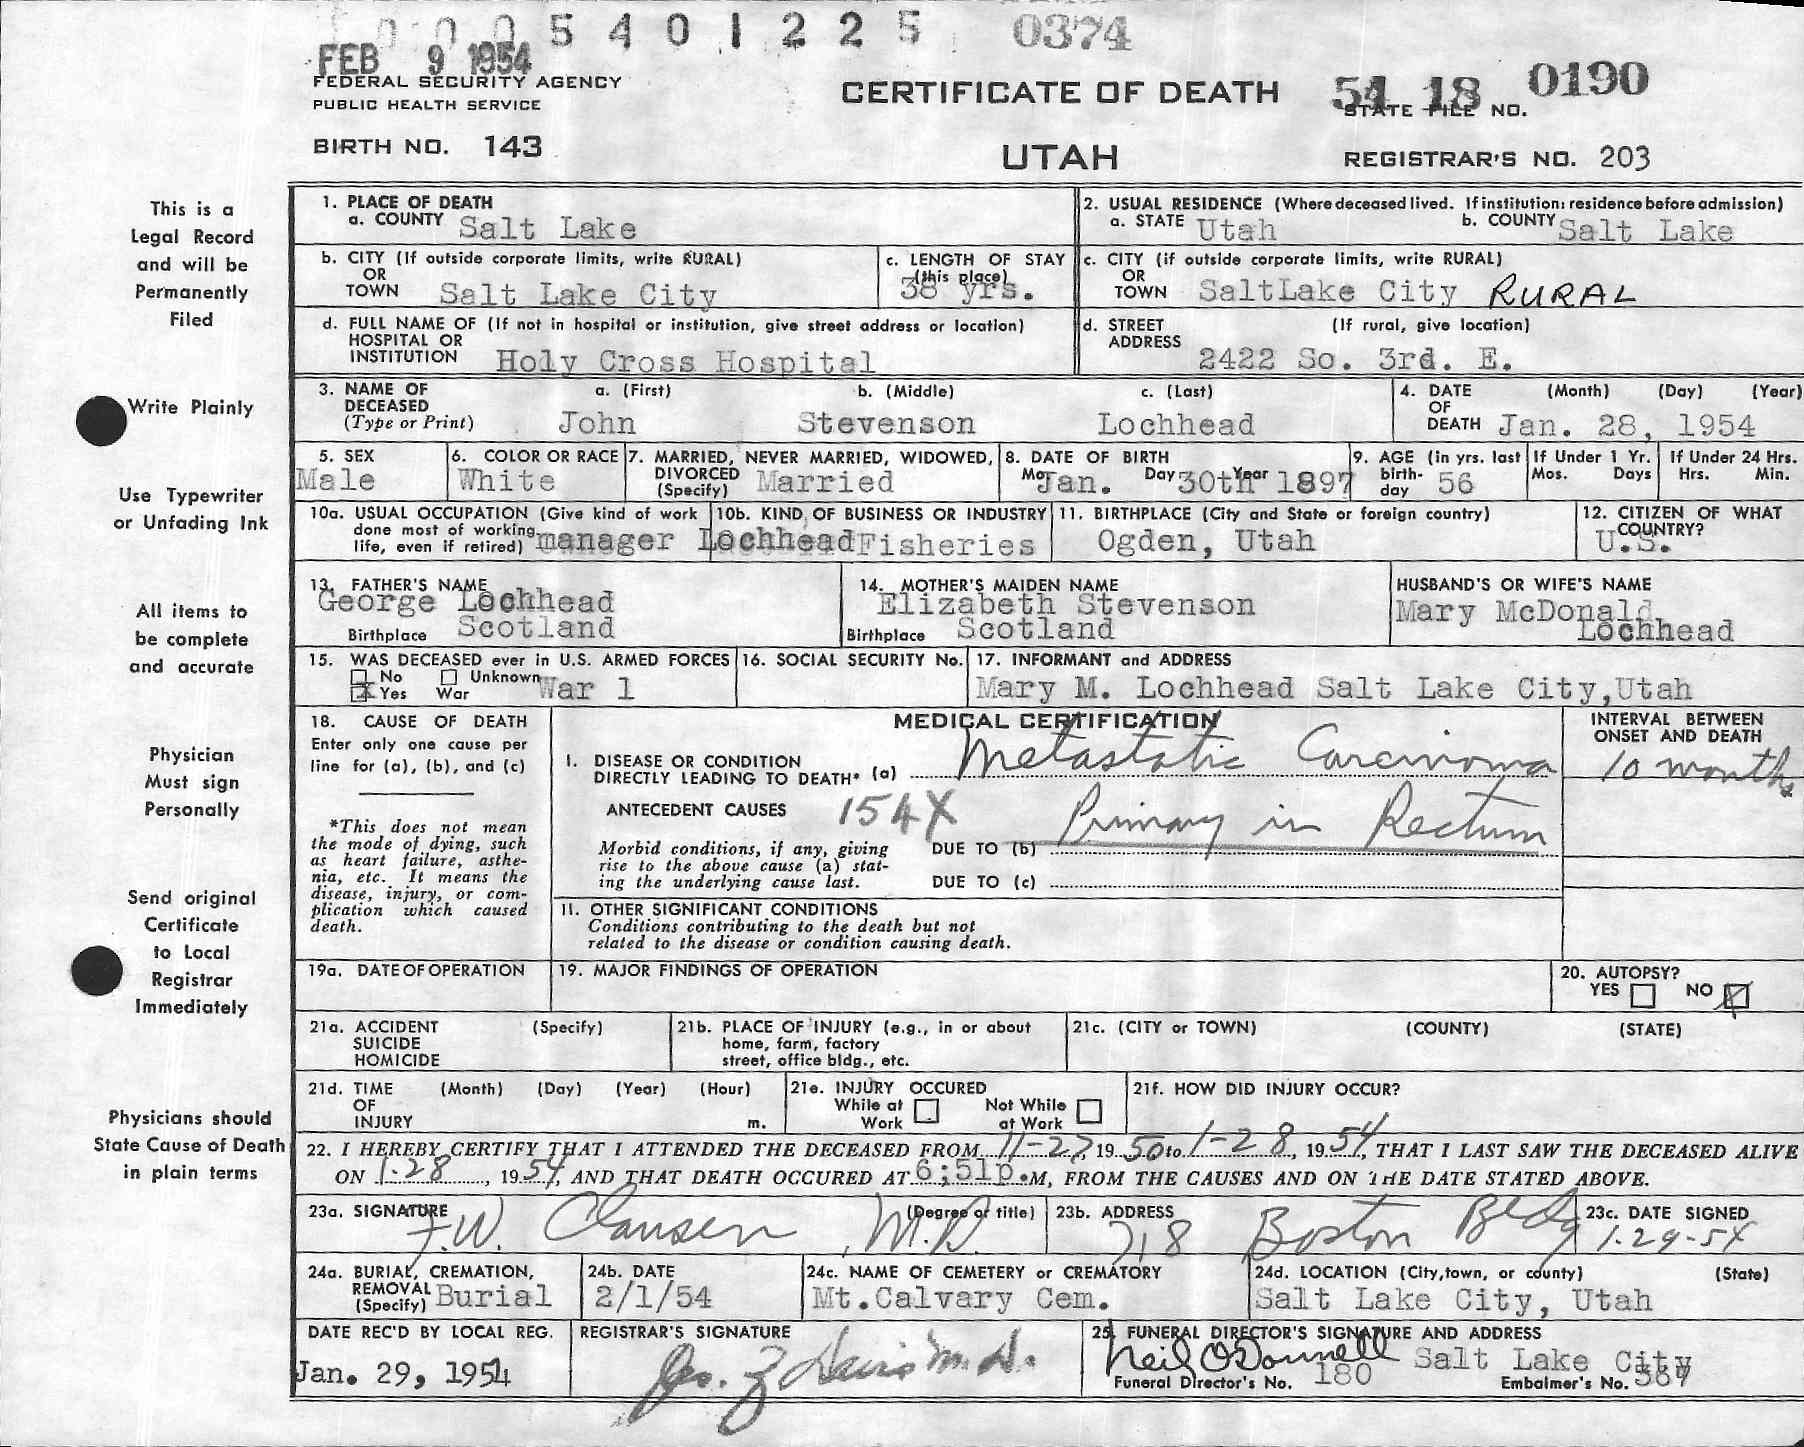 0 0 0 5 4 0 1 2 2 5 0374
FEB 9 1954
FEDERAL SECURITY AGENCY
PUBLIC HEALTH SERVICE
CERTIFICATE OF DEATH
54 18 0190
STATE FILE NO.
BIRTH NO. 143
UTAH
REGISTRAR'S NO. 203
This is a
Legal Record
and will be
Permanently
Filed
Write Plainly
Use Typewriter
or Unfading Ink
All items to
be complete
and accurate
Physician
Must sign
Personally
Send original
Certificate
to Local
Registrar
Immediately
Physicians should
State Cause of Death
in plain terms
1. PLACE OF DEATH
a. COUNTY Salt Lake
2. USUAL RESIDENCE (Where deceased lived. If institution: residence before admission)
a. STATE Utah b. COUNTY Salt Lake
b. CITY (If outside corporate limits, write RURAL)
OR
TOWN Salt Lake City
c. LENGTH OF STAY
(this place)
38 yrs.
c. CITY (if outside corporate limits, write RURAL)
OR
TOWN SaltLake City RURAL
d. FULL NAME OF (If not in hospital or institution, give street address or location)
HOSPITAL OR
INSTITUTION Holy Cross Hospital
d. STREET (If rural, give location)
ADDRESS
2422 So. 3rd. E.
3. NAME OF a. (First) b. (Middle) c. (Last)
DECEASED
(Type or Print) John Stevenson Lochhead
4. DATE (Month) (Day) (Year)
OF
DEATH Jan. 28, 1954
5. SEX
Male
6. COLOR OR RACE
White
7. MARRIED, NEVER MARRIED, WIDOWED,
DIVORCED
(Specify) Married
8. DATE OF BIRTH
Mo. Jan. Day 30th Year 1897
9. AGE (in yrs. last
birth-
day 56
If Under 1 Yr.
Mos. Days
If Under 24 Hrs.
Hrs. Min.
10a. USUAL OCCUPATION (Give kind of work
done most of working
life, even if retired) manager
10b. KIND OF BUSINESS OR INDUSTRY
Lochhead Fisheries
11. BIRTHPLACE (City and State or foreign country)
Ogden, Utah
12. CITIZEN OF WHAT
COUNTRY?
U.S.
13. FATHER'S NAME
George Lochhead
Birthplace Scotland
14. MOTHER'S MAIDEN NAME
Elizabeth Stevenson
Birthplace Scotland
HUSBAND'S OR WIFE'S NAME
Mary McDonald
Lochhead
15. WAS DECEASED ever in U.S. ARMED FORCES
No Unknown
x Yes War War 1
16. SOCIAL SECURITY No.
17. INFORMANT and ADDRESS
Mary M. Lochhead Salt Lake City,Utah
18. CAUSE OF DEATH
Enter only one cause per
line for (a), (b), and (c)
*This does not mean
the mode of dying, such
as heart failure, asthe-
nia, etc. It means the
disease, injury, or com-
plication which caused
death.
MEDICAL CERTIFICATION
I. DISEASE OR CONDITION
DIRECTLY LEADING TO DEATH* (a) Metastatic Carcinoma
ANTECEDENT CAUSES 154X Primary in Rectum
Morbid conditions, if any, giving DUE TO (b)
rise to the above cause (a) stat-
ing the underlying cause last. DUE TO (c)
INTERVAL BETWEEN
ONSET AND DEATH
10 months
11. OTHER SIGNIFICANT CONDITIONS
Conditions contributing to the death but not
related to the disease or condition causing death.
19a. DATE OF OPERATION
19. MAJOR FINDINGS OF OPERATION
20. AUTOPSY?
YES NO X
21a. ACCIDENT (Specify)
SUICIDE
HOMICIDE
21b. PLACE OF INJURY (e.g., in or about
home, farm, factory
street, office bldg., etc.
21c. (CITY or TOWN) (COUNTY) (STATE)
21d. TIME (Month) (Day) (Year) (Hour)
OF
INJURY m.
21e. INJURY OCCURED
While at Not While
Work at Work
21f. HOW DID INJURY OCCUR?
22. I HEREBY CERTIFY THAT I ATTENDED THE DECEASED FROM 11-27 1950 to 1-28, 1954, THAT I LAST SAW THE DECEASED ALIVE
ON 1-28, 1954, AND THAT DEATH OCCURED AT 6;51p.M, FROM THE CAUSES AND ON THE DATE STATED ABOVE.
23a. SIGNATURE (Degree or title)
F.W. Clausen, M.D.
23b. ADDRESS
718 Boston Bldg
23c. DATE SIGNED
1-29-54
24a. BURIAL, CREMATION,
REMOVAL
(Specify) Burial
24b. DATE
2/1/54
24c. NAME OF CEMETERY or CREMATORY
Mt.Calvary Cem.
24d. LOCATION (City,town, or county) (State)
Salt Lake City, Utah
DATE REC'D BY LOCAL REG.
Jan. 29, 1954
REGISTRAR'S SIGNATURE
Davis M.D.
25. FUNERAL DIRECTOR'S SIGNATURE AND ADDRESS
Neil O'Donnell Salt Lake City
Funeral Director's No. 180 Embalmer's No.